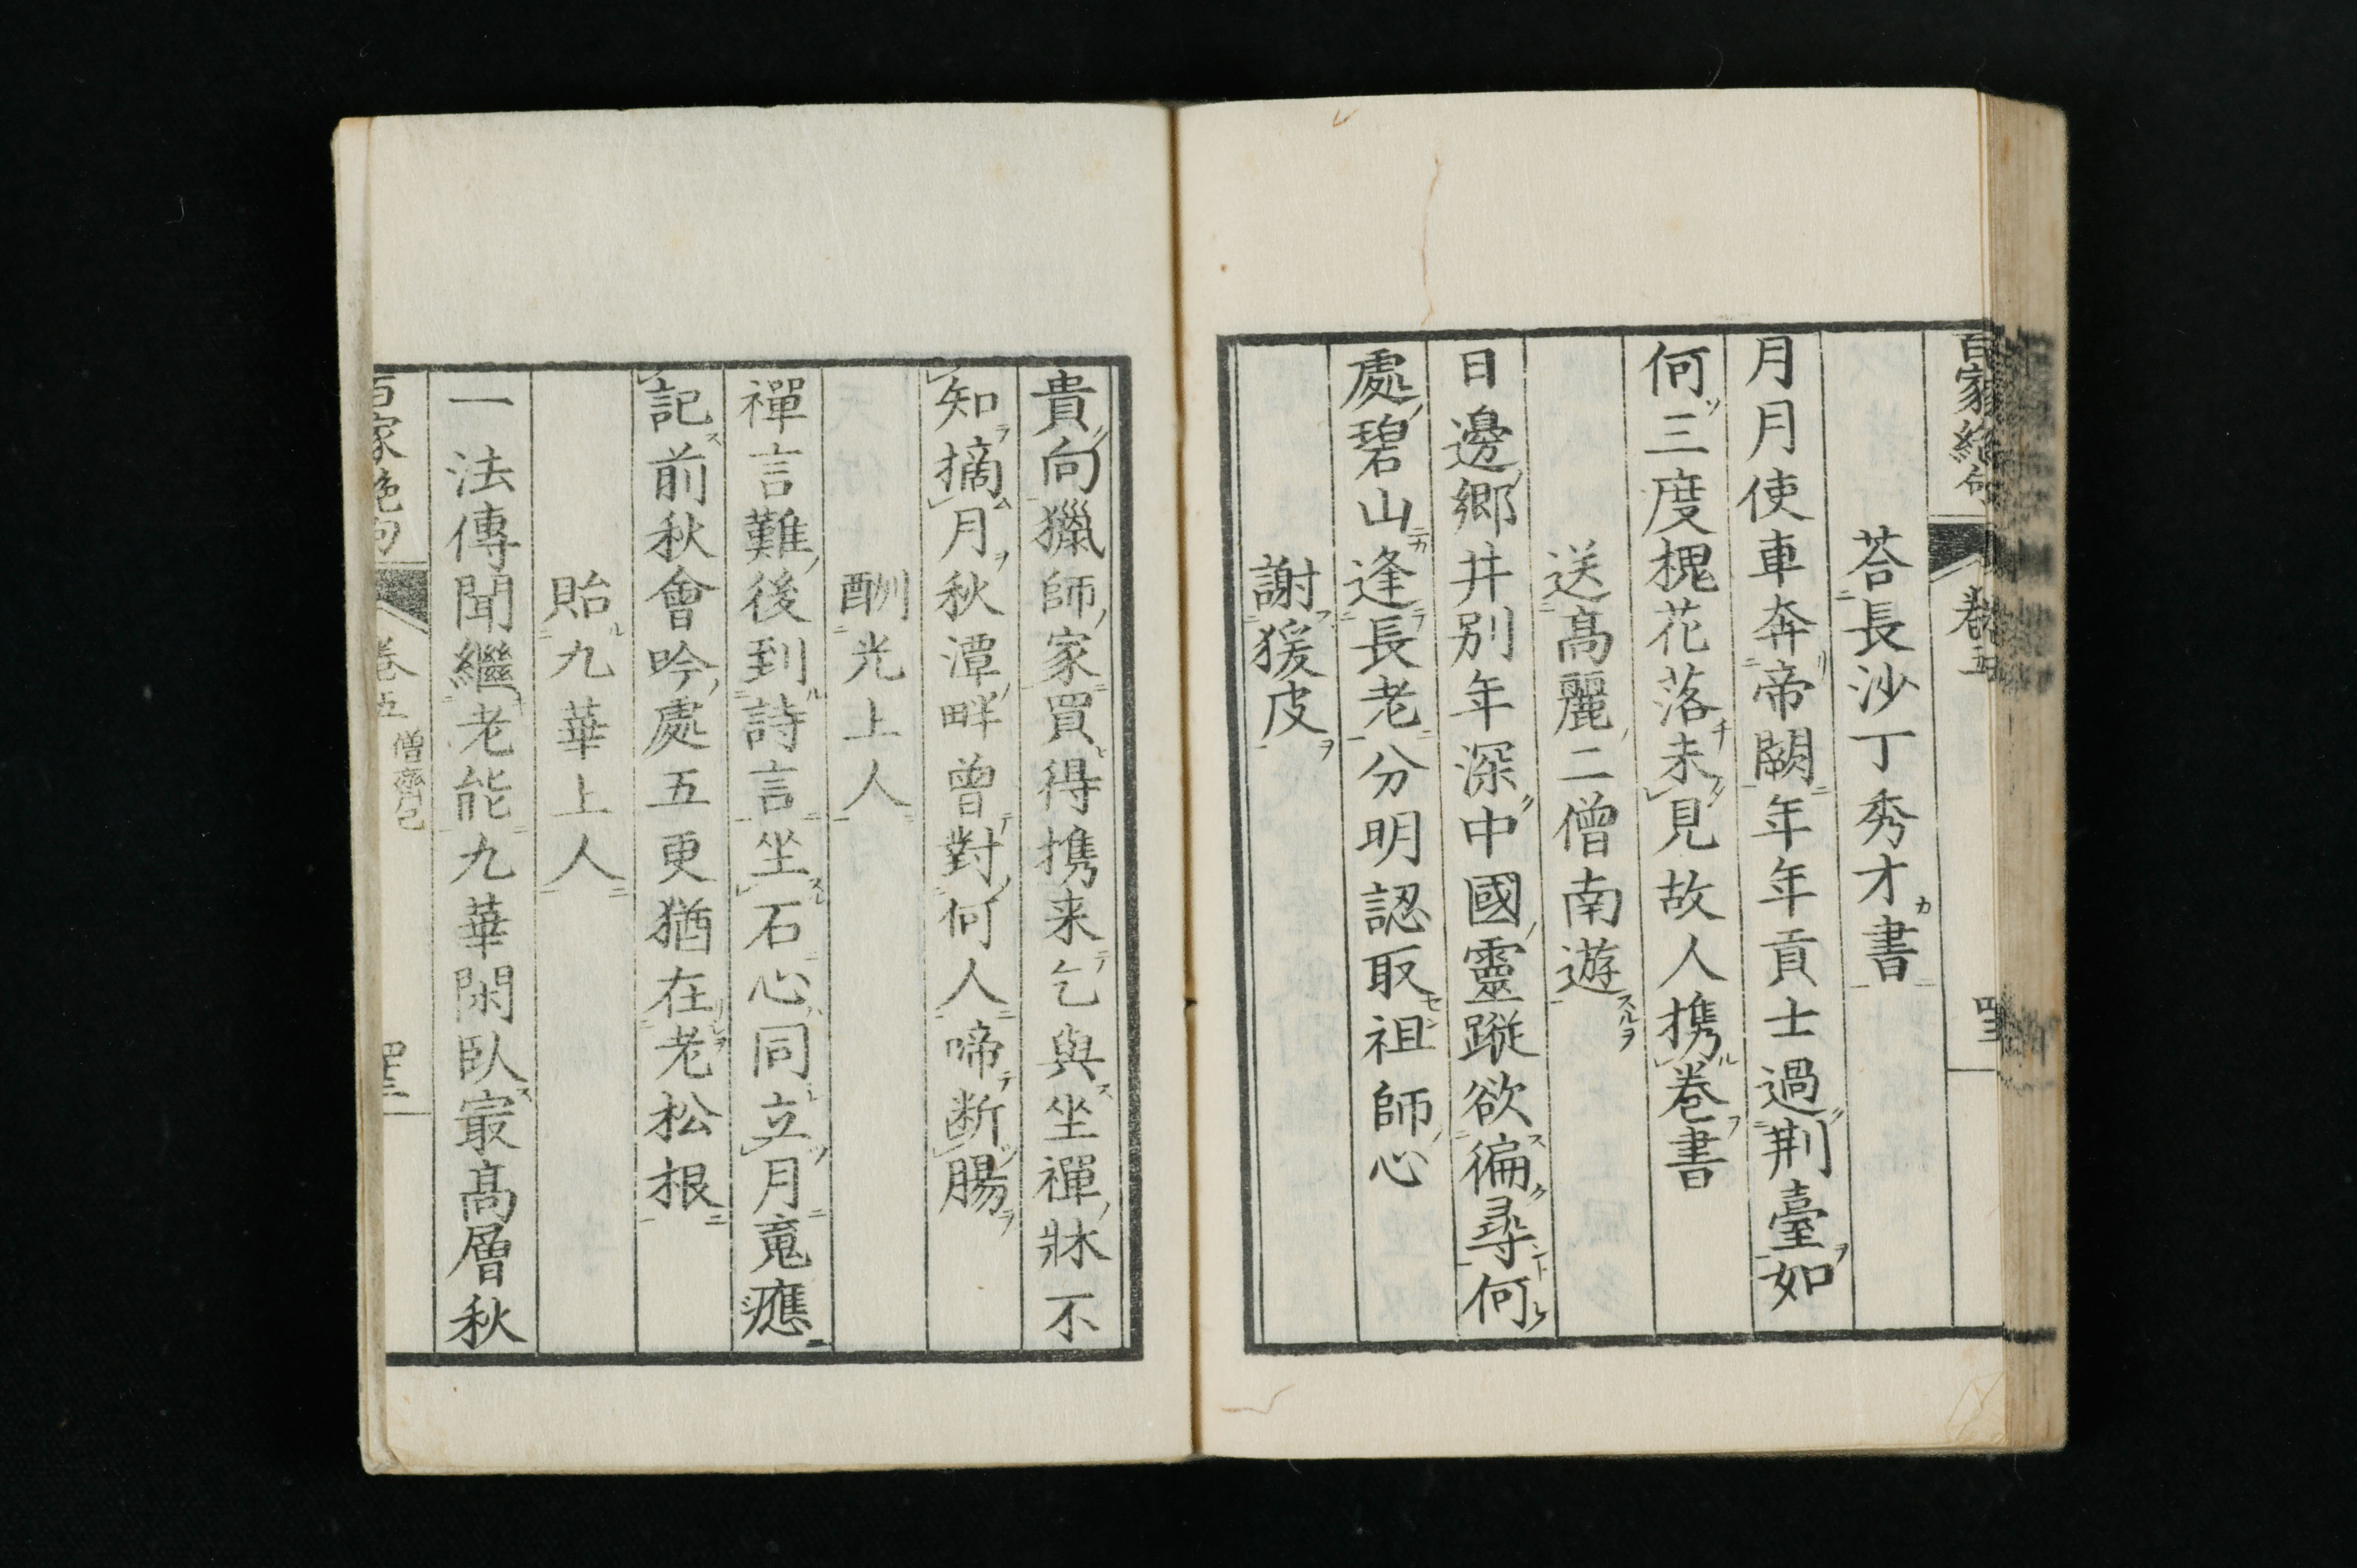 百家絶句 卷五
荅長沙丁秀才書
月月使車奔帝闕年年貢士過荆臺如
何三度槐花落未見故人携卷書
送髙麗二僧南遊
日邊郷井别年深中國靈蹤欲徧尋何
處碧山逢長老分明認取祖師心
謝猨皮
貴向獵師家買得携来乞與坐禪牀不
知摘月秋潭畔曾對何人啼断膓
酬光上人
禪言難後到詩言坐石心同立月䰟應
記前秋會吟處五更猶在老松根
貽九華上人
一法傳聞繼老能九華閑臥㝡髙層秋
百家絶句 卷五 僧齊己